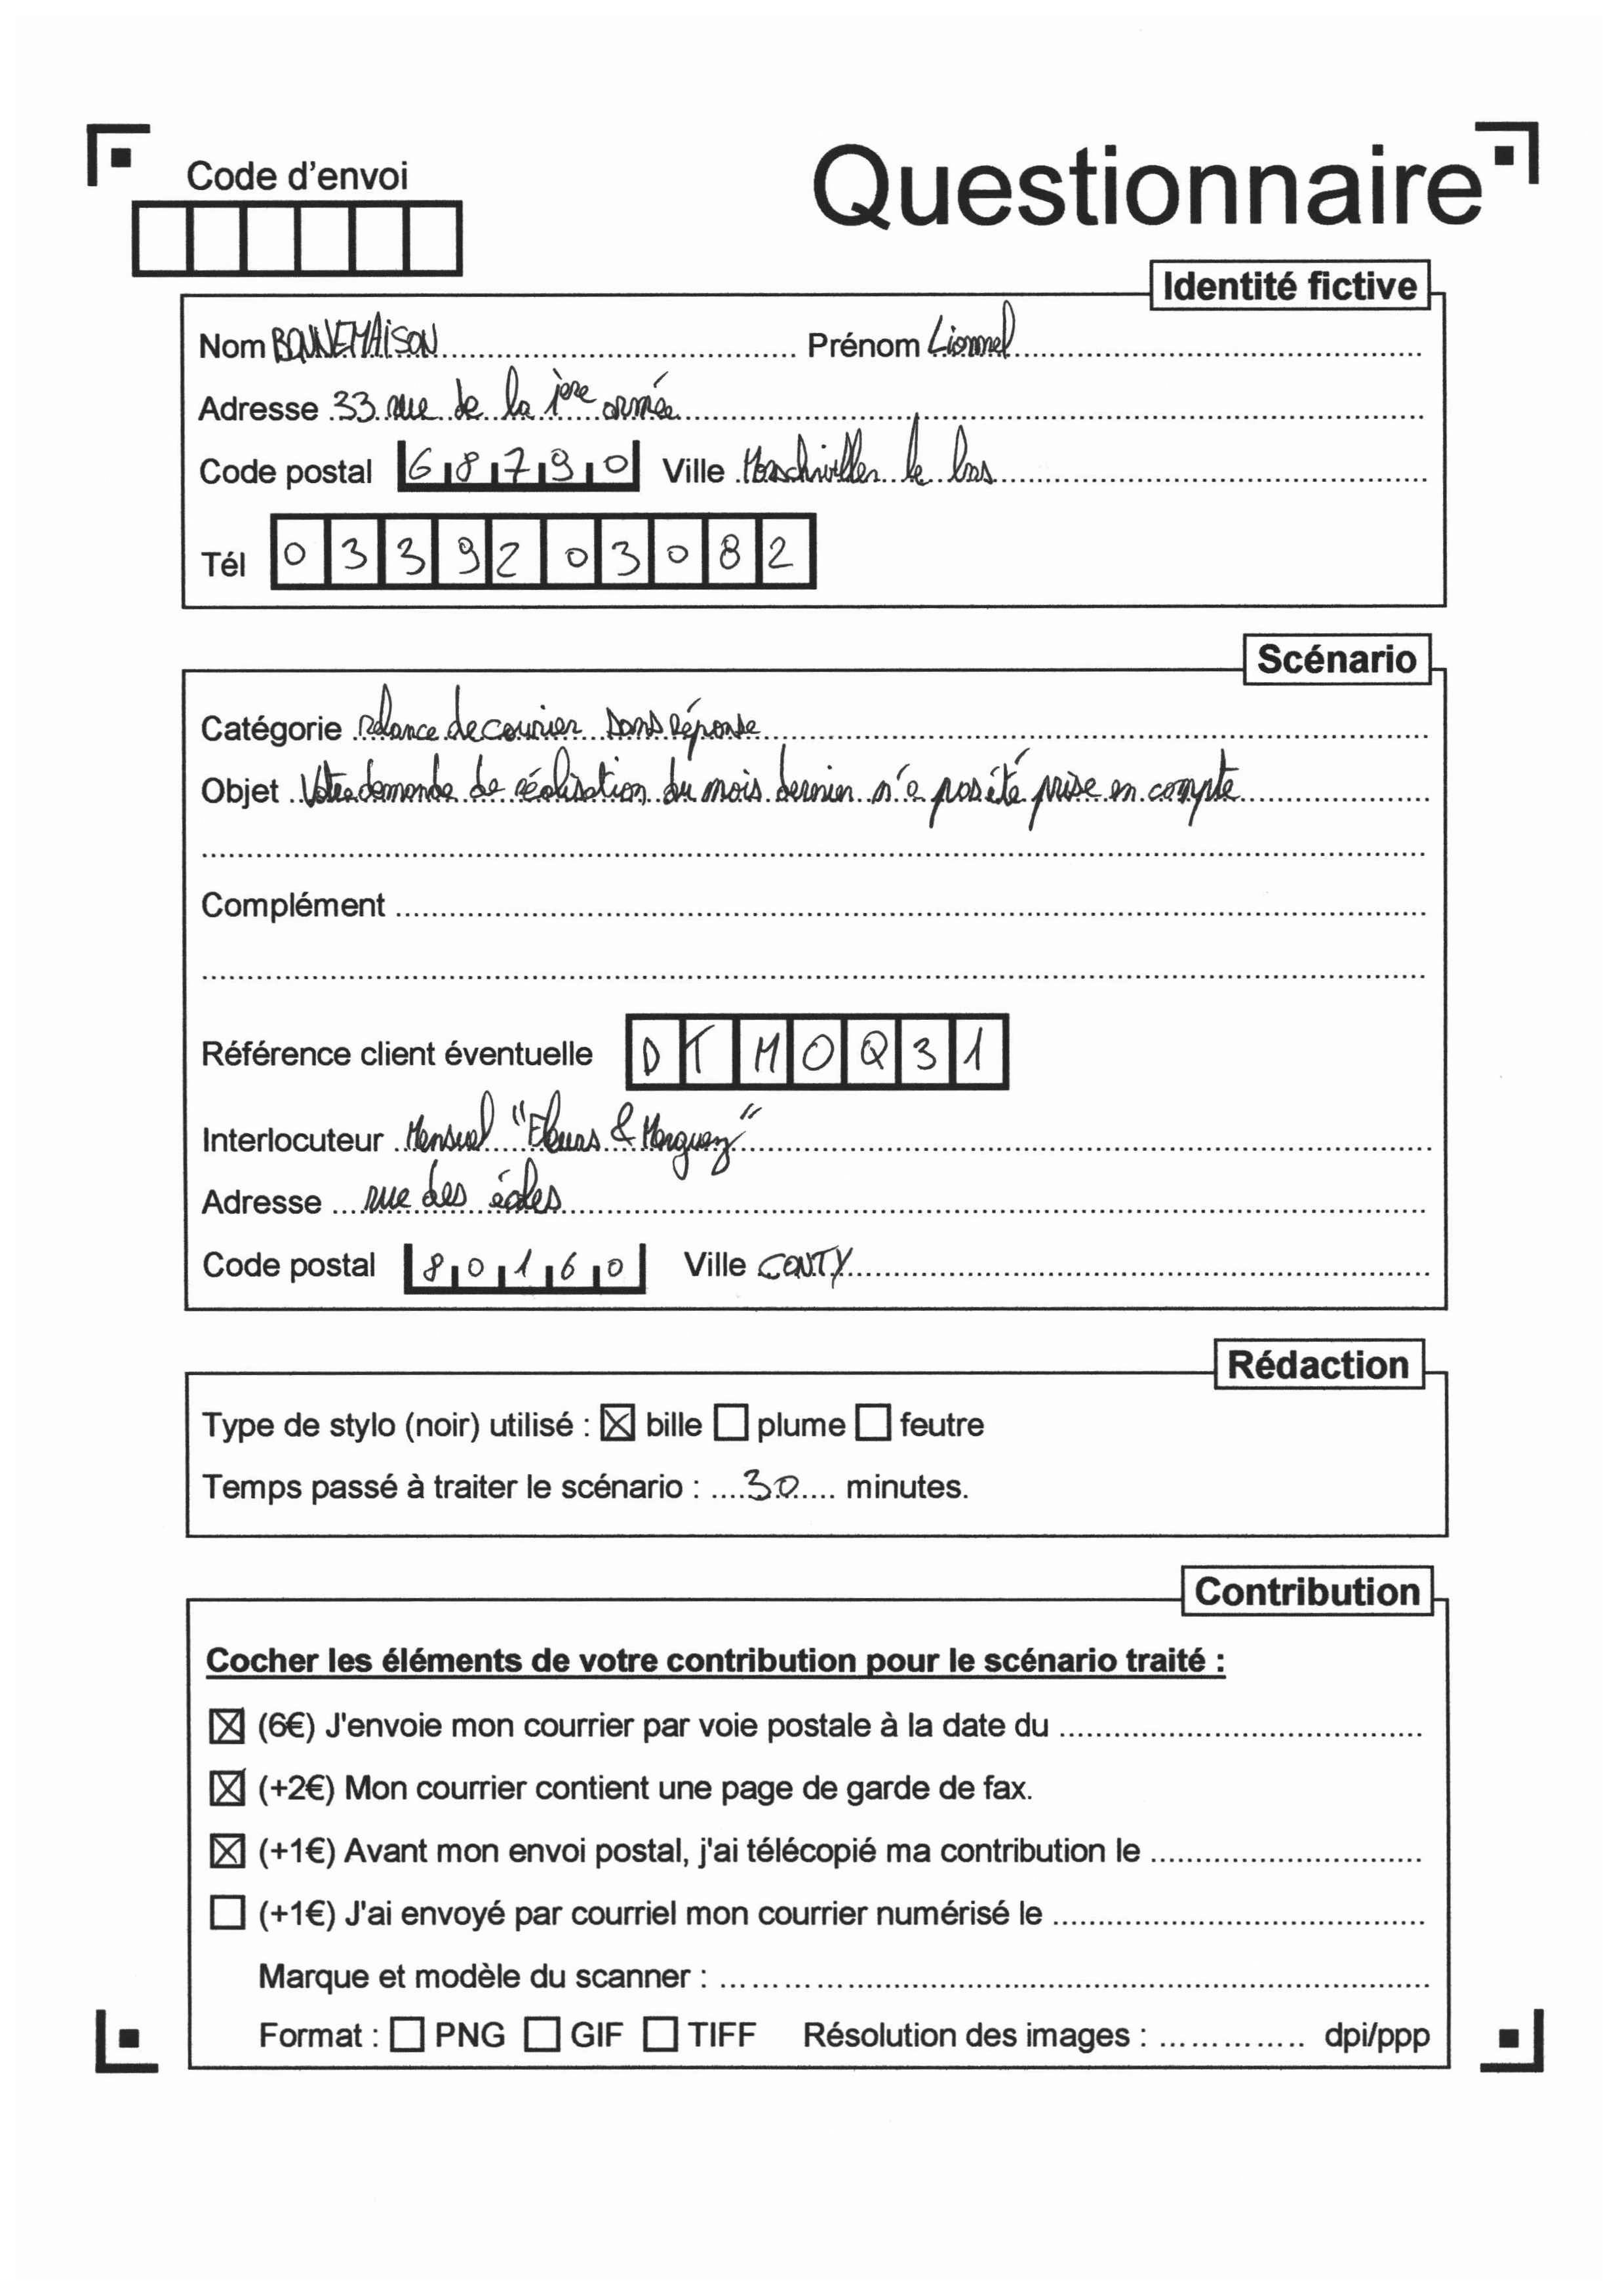 Code d'envoi
Questionnaire
Identité fictive
Nom BONNEMAISON Prénom Lionnel
Adresse 33 rue de la 1ère armée
Code postal 68790 Ville Morschwiller le bas
Tél 0339203082
Scénario
Catégorie Relance de courier sans réponse
Objet Votre demande de réalisation du mois dernier n'a pas été prise en compte
Complément
Référence client éventuelle DTMOQ31
Interlocuteur Mensuel "Fleurs & Merguez"
Adresse rue des écoles
Code postal 80160 Ville CONTY
Rédaction
Type de stylo (noir) utilisé : ☒ bille ☐ plume ☐ feutre
Temps passé à traiter le scénario : 30 minutes.
Contribution
Cocher les éléments de votre contribution pour le scénario traité :
☒ (6€) J'envoie mon courrier par voie postale à la date du
☒ (+2€) Mon courrier contient une page de garde de fax.
☒ (+1€) Avant mon envoi postal, j'ai télécopié ma contribution le
☐ (+1€) J'ai envoyé par courriel mon courrier numérisé le
Marque et modèle du scanner :
Format : ☐ PNG ☐ GIF ☐ TIFF Résolution des images : dpi/ppp